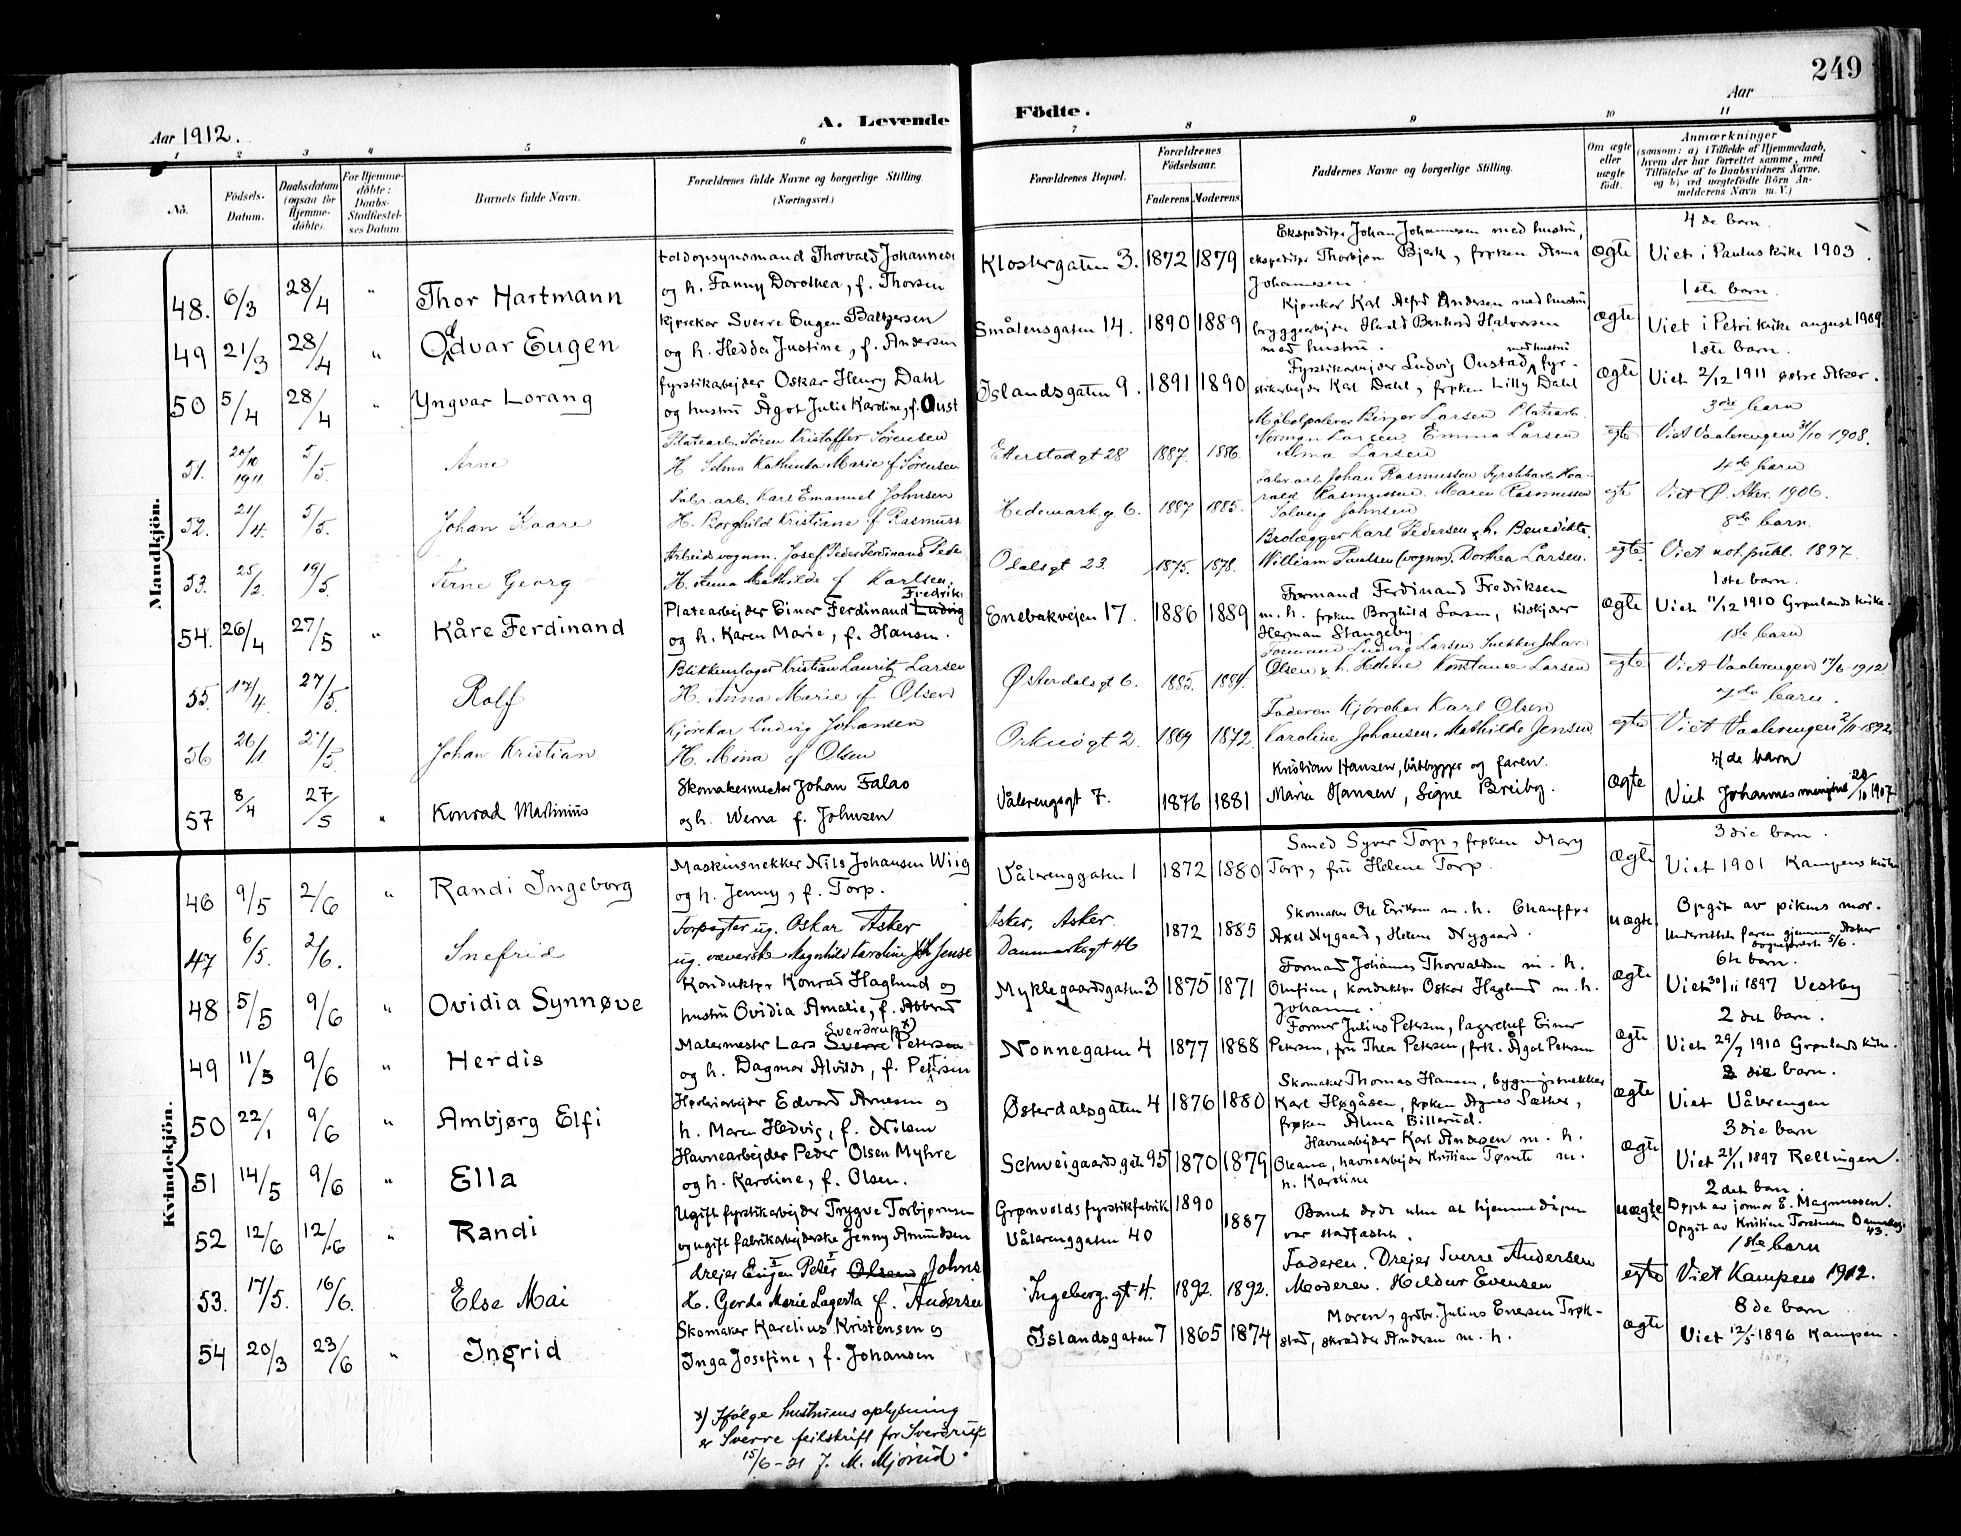 249
Aar 1912.
A. Levende Födte.
Aar
1 2 3 4 5 6 7 8 9 10 11
No.
Födsels-Datum.
Daabsdatum (ogsaa for Hjemme-döbte).
For Hjemme-döbte: Daabs-Stadfæstel-ses Datum.
Barnets fulde Navn.
Forældrenes fulde Navne og borgerlige Stilling (Næringsvei)
Forældrenes Bopæl.
Forældrenes Födselsaar.
Faderens Moderens
Faddernes Navne og borgerlige Stilling.
Om ægte eller uægte født.
Anmærkninger
(saasom: a) i Tilfælde af Hjemmedaab, hvem der har forrettet samme, med Tilföielse af to Daabsvidners Navne, og b) ved uægtefödte Börn An-melderens Navn m. V.)
Mandkjön.
48. 6/3 28/4 " Thor Hartmann
toldopsynsmand Thorvald Johannes
og h. Fanny Dorothea, f. Thorsen
Klostergaten 3. 1872 1879
Ekspeditør Johan Johannesen med hustru,
ekspeditør Thorbjørn Bjerk, frøken Anna
Johannesen
ægte
4 de barn.
Viet i Paulus kirke 1903.
49 21/3 28/4 " Odvar Eugen
Kjørekar Sverre Eugen Baltzersen
og h. Hedda Justine, f. Andersen
Smålensgaten 14. 1890 1889
Kjørekar Karl Alfred Andersen med hustru
bryggerarbejder Harald Bernhard Halvorsen
med hustru.
ægte
1 ste barn.
Viet i Petri kirke august 1909.
50 5/4 28/4 " Yngvar Lorang
fyrstikarbejder Oskar Henry Dahl
og hustru Ågot Julie Karoline, f. Oust
Islandsgaten 9. 1891 1890
med hustru
Fyrstikarbejder Ludvig Oustad, fyr-
stikarbejder Karl Dahl, frøken Lilly Dahl
ægte
1 ste barn.
Viet 2/12 1911 østre Aker.
51. 20/10 1911 5/5. Arne
Platearb. Søren Kristoffer Sørensen
H. Selma Kathinka Marie f. Sørensen
Etterstadgt 28 1887. 1886.
Møbelpolerer Birger Larsen Platearb.
Norman Larsen, Emma Larsen
Alma Larsen
egte
3de barn
Viet Vaalerengen 31/10 1908.
52. 21/4. 5/5. Johan Kaare
Fabr.arb. Karl Emanuel Johnsen
H. Borghild Kristiane f Rasmuss
Hedemark g. 6. 1887 1885.
Fabr.arb. Johan Rasmussen Fyrstikarb. Haa-
rald Rasmussen. Maren Rasmussen
Solveig Johnsen
egte
4de barn
Viet Ø. Aker. 1906.
53. 25/2. 19/5. Arne Georg
Arbeidsvognm. Josef Peder Ferdinand Pede
H. Anna Mathilde f Karlsen.
Odalsgt 23. 1875. 1878.
Brolægger Karl Pedersen & h. Benedikte.
William Paulsen (vognm). Dorthea Larsen.
egte
8de barn.
Viet not. publ. 1897.
54. 26/4 27/5 " Kåre Ferdinand
Fredrik
Platearbejder Einar Ferdinand Ludvig
og h. Karen Marie, f. Hansen.
Enebakvejen 17. 1886 1889
Formand Ferdinand Fredriksen
m. h. frøken Borghild Larsen, tilskjærer
Herman Stangeby
ægte
1 ste barn.
Viet 11/12 1910 Grønlands kirke.
55. 17/4. 27/5. Rolf
Blikkenslager Kristian Lauritz Larsen
H. Anna Marie f Olsen
Østerdalsgt 6. 1885. 1884.
Formand Ludvig Larsen Snekker Johan
Olsen & h. Helene Konstanse Larsen
egte
1ste barn
Viet Vaalerengen 17/6-1912
56 26/1 27/5. Johan Kristian
Kjørekar Ludvig Johansen
H. Mina f Olsen
Orknøgt 2. 1869 1872
Faderen Kjørekar Karl Olsen
Karoline Johansen. Mathilde Jensen
egte
7de barn.
Viet Vaalerengen 2/11-1892.
57 8/4 27/5 " Konrad Martinius
Skomakermester Johan Falao
og h. Werna f. Johnsen
Vålerengsgt 7. 1876 1881
Kristian Hansen, båtbygger og faren.
Marie Hansen, Signe Breiby.
ægte
4de barn
Viet Johannes menighet 20/10 1907
Kvindekjön.
46 9/5 2/6 " Randi Ingeborg
Maskinsnekker Nils Johansen Wiig
og h. Jenny, f. Torp.
Vålerenggaten 1 1872 1880
Smed Syver Torp, frøken Mary
Torp, fru Helene Torp.
ægte
3 die barn.
Viet 1901 Kampens kirke
47 6/5. 2/6. Snefrid
Forpagter ug. Oskar Asker
ug. væverske Magnhild Karoline Jense
Asker, Asker.
Danmarksgt 46
1872 1885
Skomaker Ole Eriksen m. h. Chauffør
Axel Nygaard, Helene Nygaard.
uægte
Opgit av pikens mor.
Underrettet faren gjennem Asker
sogneprest 5/6.
48 5/5 9/6 " Ovidia Synnøve
Konduktør Konrad Haglund og
hustru Ovidia Amalie, f. Abberud
Myklegaardsgaten 3 1875 1871
Formand Johannes Thorvaldsen m. h.
Olufine, konduktør Oskar Haglund m. h.
Johanne.
ægte
6te barn.
Viet 30/11 1897 Vestby
49 11/5 9/6 " Herdis
Sverdrup x)
Malermester Lars Sverre Petersen
og h. Dagmar Alvilde, f. Petersen
Nonnegaten 4 1877 1888
Former Julius Petersen, lagerchef Einar
Petersen, fru Thea Petersen, frk. Ågot Petersen
ægte
2 det barn.
Viet 29/7 1910 Grønlands kirke.
50 22/1 9/6 " Ambjørg Elfi
Høvleriarbejder Edvard Arnesen og
h. Maren Hedvig, f. Nilsen
Østerdalsgaten 4 1876 1880
Skomaker Thomas Hansen, bygningssnekker
Karl Høgåsen, frøken Agnes Sæther,
frøken Alma Billerud.
ægte
3 die barn.
Viet Vålerengen
51 14/5 9/6 " Ella
Havnearbejder Peder Olsen Myhre
og h. Karoline, f. Olsen.
Schweigaardsgate 95 1870 1879
Havnearbejder Karl Andersen m. h.
Oleana, havnearbejder Kristian Tømte m.
h. Karoline
ægte
3 die barn
Viet 21/11 1897 Rellingen.
52 12/6 12/6 " Randi
Ugift fyrstikarbejder Trygve Torbjørnsen
og ugift fabrikarbejderske Jenny Amundsen
Grønvolds fyrstikfabrik
Vålerenggaten 40
1890 1887
Barnet døde uten at hjemmedåpen
var stadfæstet.
uægte
2 det barn.
Døpt av jormor E. Magnussen.
Opgit av Kristine Torstensen Danmarksg. 43.
53. 17/5. 16/6. Else Mai
drejer Eugen Peter Olsen Johns
H. Gerda Marie Lagerta f. Andersen
Ingeborgs gt 4. 1892. 1892.
Faderen. Drejer Sverre Andersen
Moderen. Hildur Evensen
egte
1ste barn
Viet Kampen 1912.
54 20/3 23/6 " Ingrid
Skomaker Karelius Kristensen og
Inga Josefine, f. Johansen
Islandsgaten 7 1865 1874
Moren, grdbr. Julius Enersen Trøk-
stad, skrædder Andersen m. h.
ægte
8 de barn
Viet 12/5-1896 Kampen.
x) Ifølge hustruens oplysning
er Sverre feilskrift for Sverdrup
15/6-21 J. M. Mjørud.